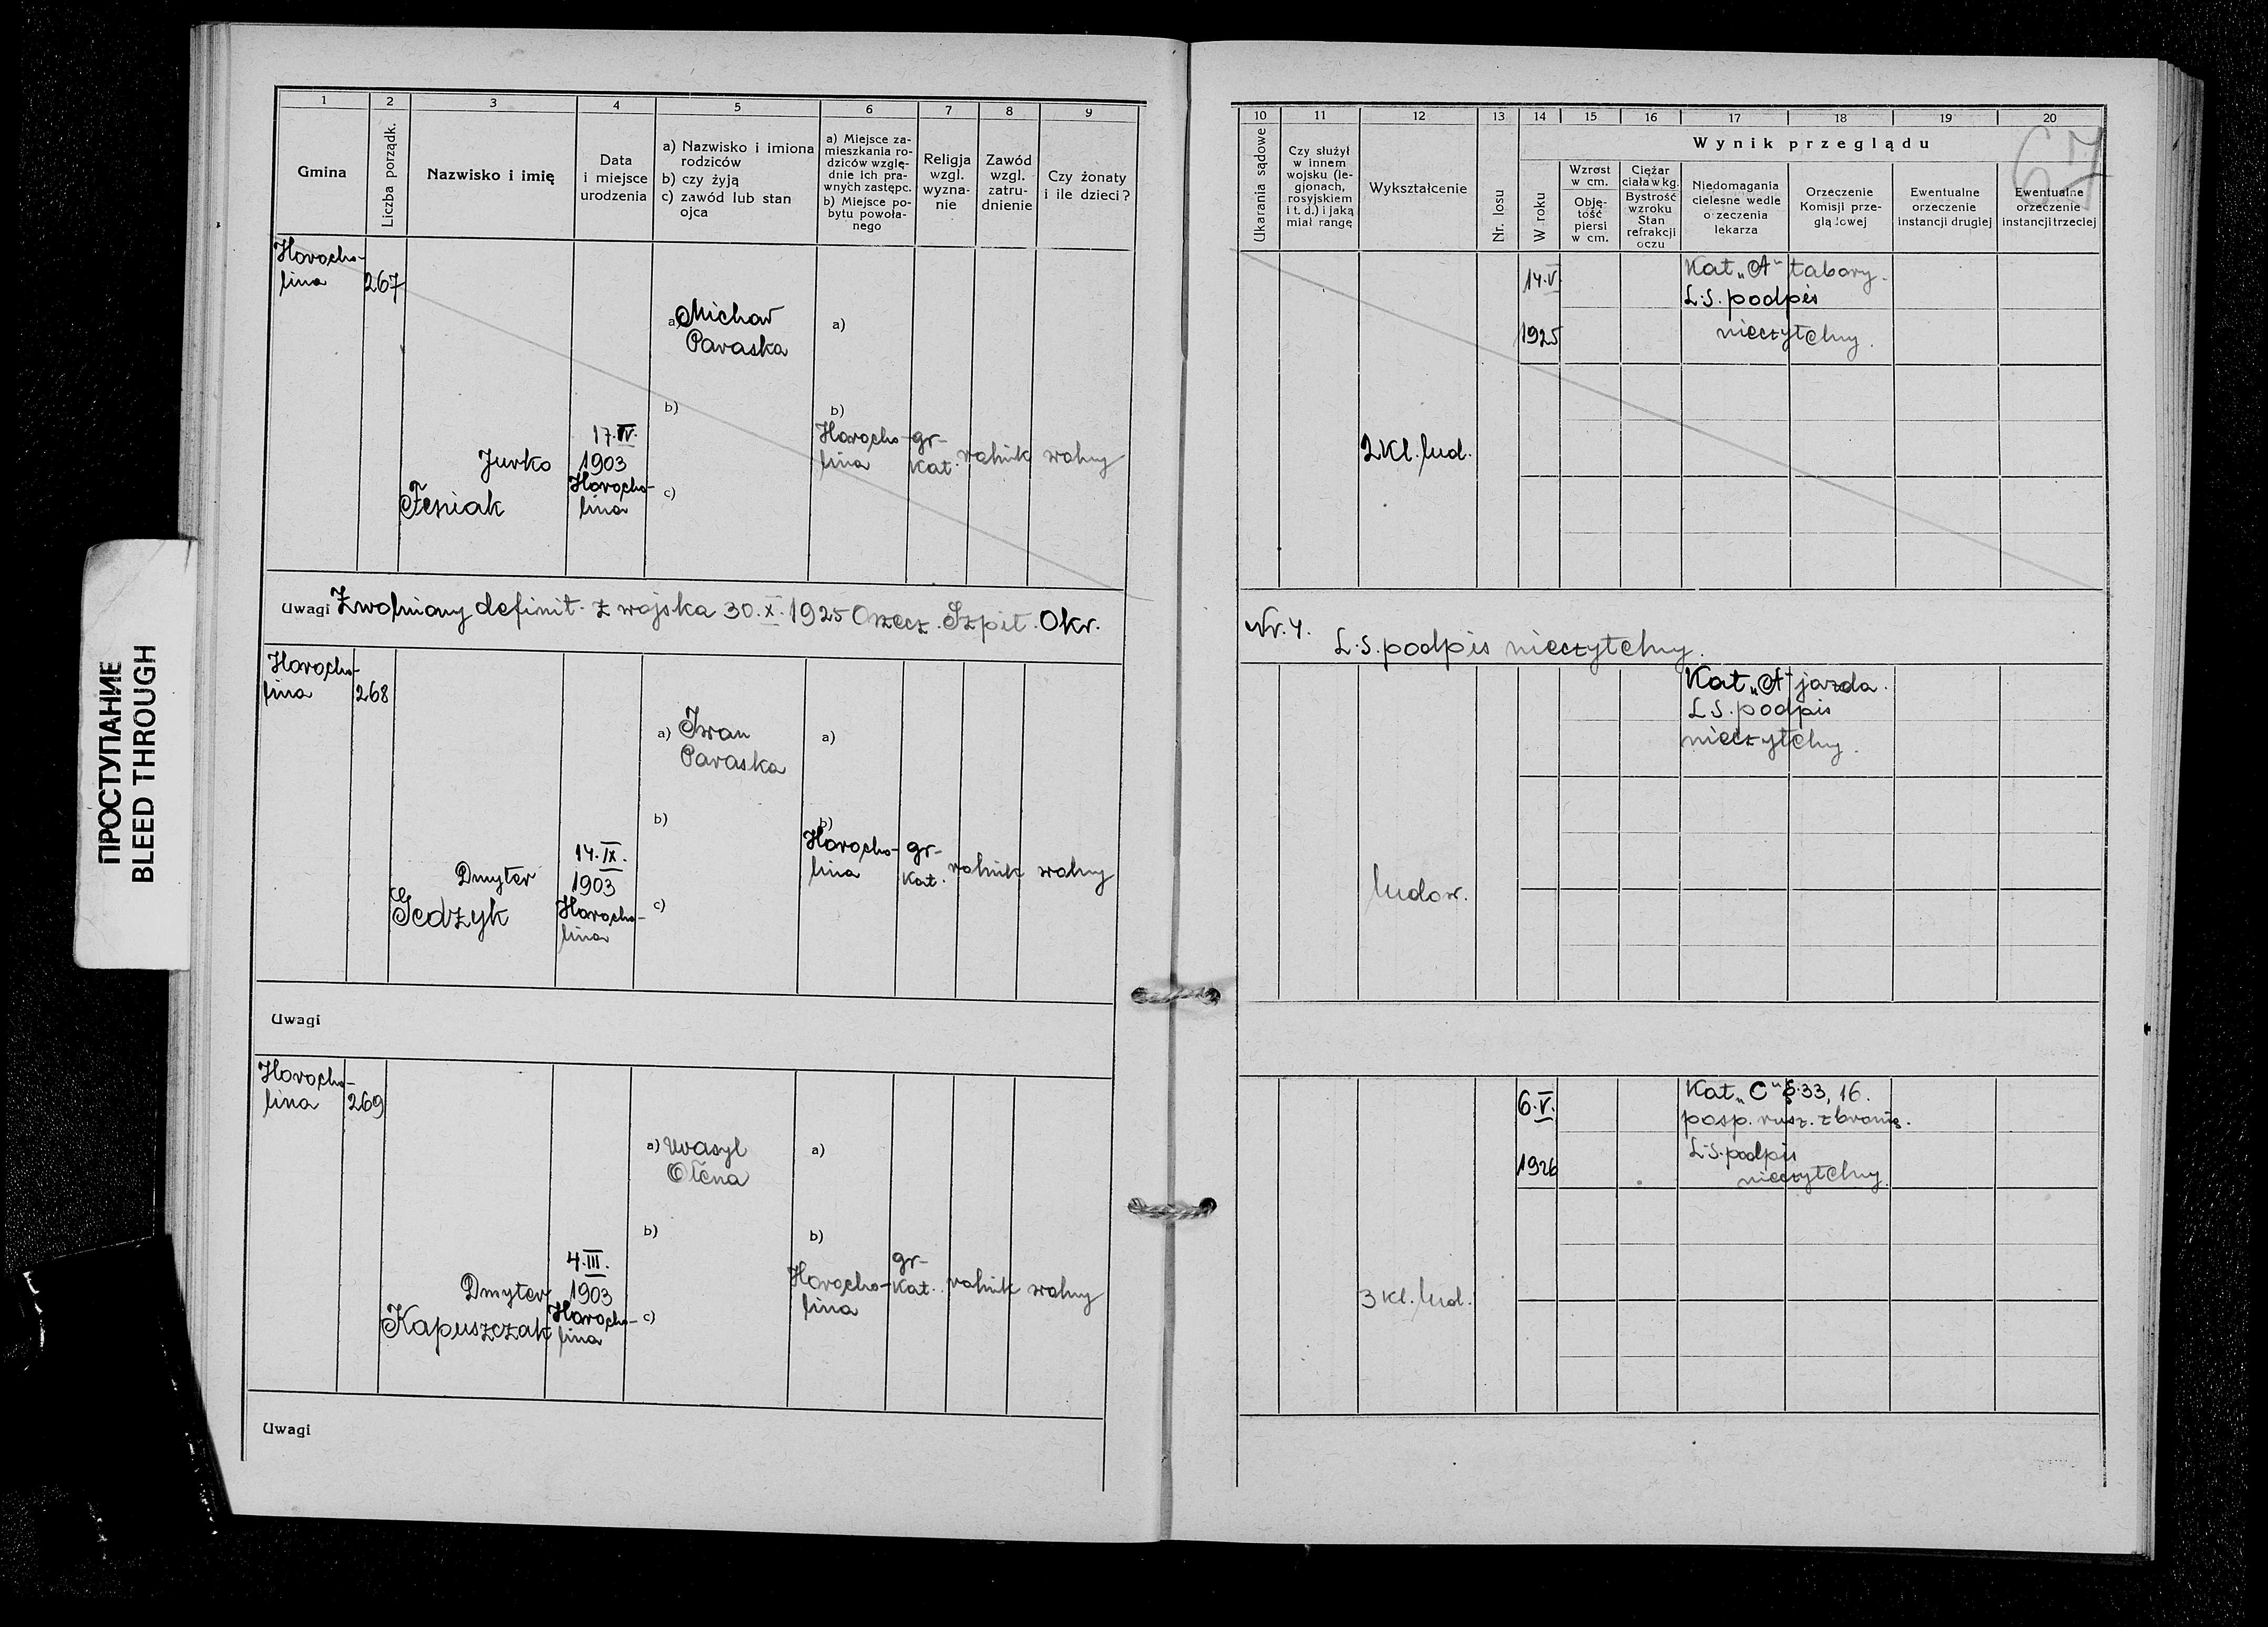 ПРОСТУПАНИЕ
BLEED THROUGH
1 2 3 4 5 6 7 8 9
Gmina
Liczba porządk.
Nazwisko i imię
Data
i miejsce
urodzenia
a) Nazwisko i imiona
rodziców
b) czy żyją
c) zawód lub stan
ojca
a) Miejsce za-
mieszkania ro-
dziców wzglę-
dnie ich pra-
wnych zastępc.
b) Miejsce po-
bytu powoła-
nego
Religja
wzgl.
wyzna-
nie
Zawód
wzgl.
zatru-
dnienie
Czy żonaty
i ile dzieci?
Horocho-
lina
267
Jurko
Fesiak
17.IV.
1903
Horocho-
lina
a) Michał
Paraska
b)
c)
a)
b)
Horocho-
lina
gr-
kat.
rolnik
wolny
Uwagi Zwolniony definit. z wojska 30.X.1925 Orzecz. Szpit. Okr.
Horocho-
lina
268
Dmyter
Gedzyk
14.IX.
1903
Horocho-
lina
a) Iwan
Paraska
b)
c)
a)
b)
Horocho-
lina
gr-
kat.
rolnik
wolny
Uwagi
Horocho-
lina
269
Dmyter
Kapuszczak
4.III.
1903
Horocho-
lina
a) Wasyl
Ołena
b)
c)
a)
b)
Horocho-
lina
gr-
kat.
rolnik
wolny
Uwagi
67
10 11 12 13 14 15 16 17 18 19 20
Ukarania sądowe
Czy służył
w innem
wojsku (le-
gjonach,
rosyjskiem
i t. d.) i jaką
miał rangę
Wykształcenie
Nr. losu
Wynik przeglądu
W roku
Wzrost
w cm.
Obję-
tość
piersi
w cm.
Ciężar
ciała w kg.
Bystrość
wzroku
Stan
refrakcji
oczu
Niedomagania
cielesne wedle
o zeczenia
lekarza
Orzeczenie
Komisji prze-
glą lowej
Ewentualne
orzeczenie
instancji drugiej
Ewentualne
orzeczenie
instancji trzeciej
2 kl. lud.
14.V.
1925
Kat „A" tabory.
L.S. podpis
nieczytelny.
Nr. 4.
L.S. podpis nieczytelny.
ludow.
Kat „A" jazda.
L.S. podpis
nieczytelny.
3 kl. lud.
6.V.
1926
Kat „C" §.33, 16.
posp. rusz. z bronią.
L.S. podpis
nieczytelny.